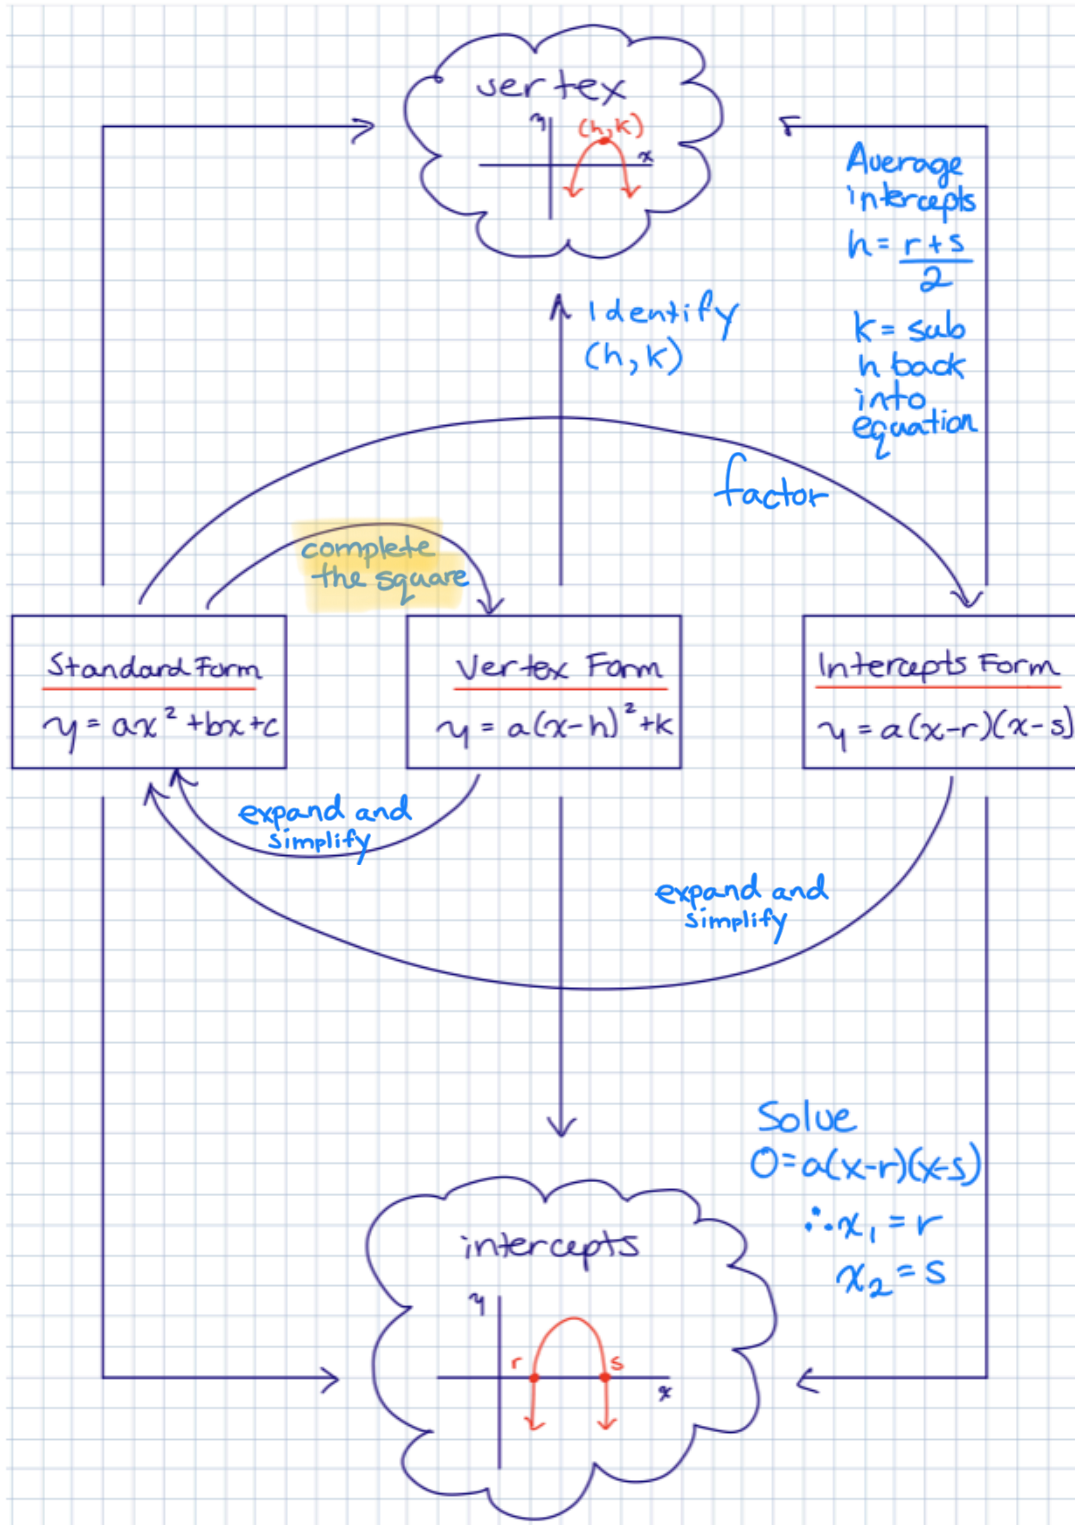 vertex
y
(h, k)
x
Average
intercepts
h = r+s
2
Identify
(h, k)
k = sub
h back
into
equation
factor
complete
the square
Standard Form
y = ax² + bx + c
Vertex Form
y = a(x-h)² + k
Intercepts Form
y = a(x-r)(x-s)
expand and
simplify
expand and
simplify
Solve
0 = a(x-r)(x-s)
∴ x₁ = r
x₂ = s
intercepts
y
r
s
x